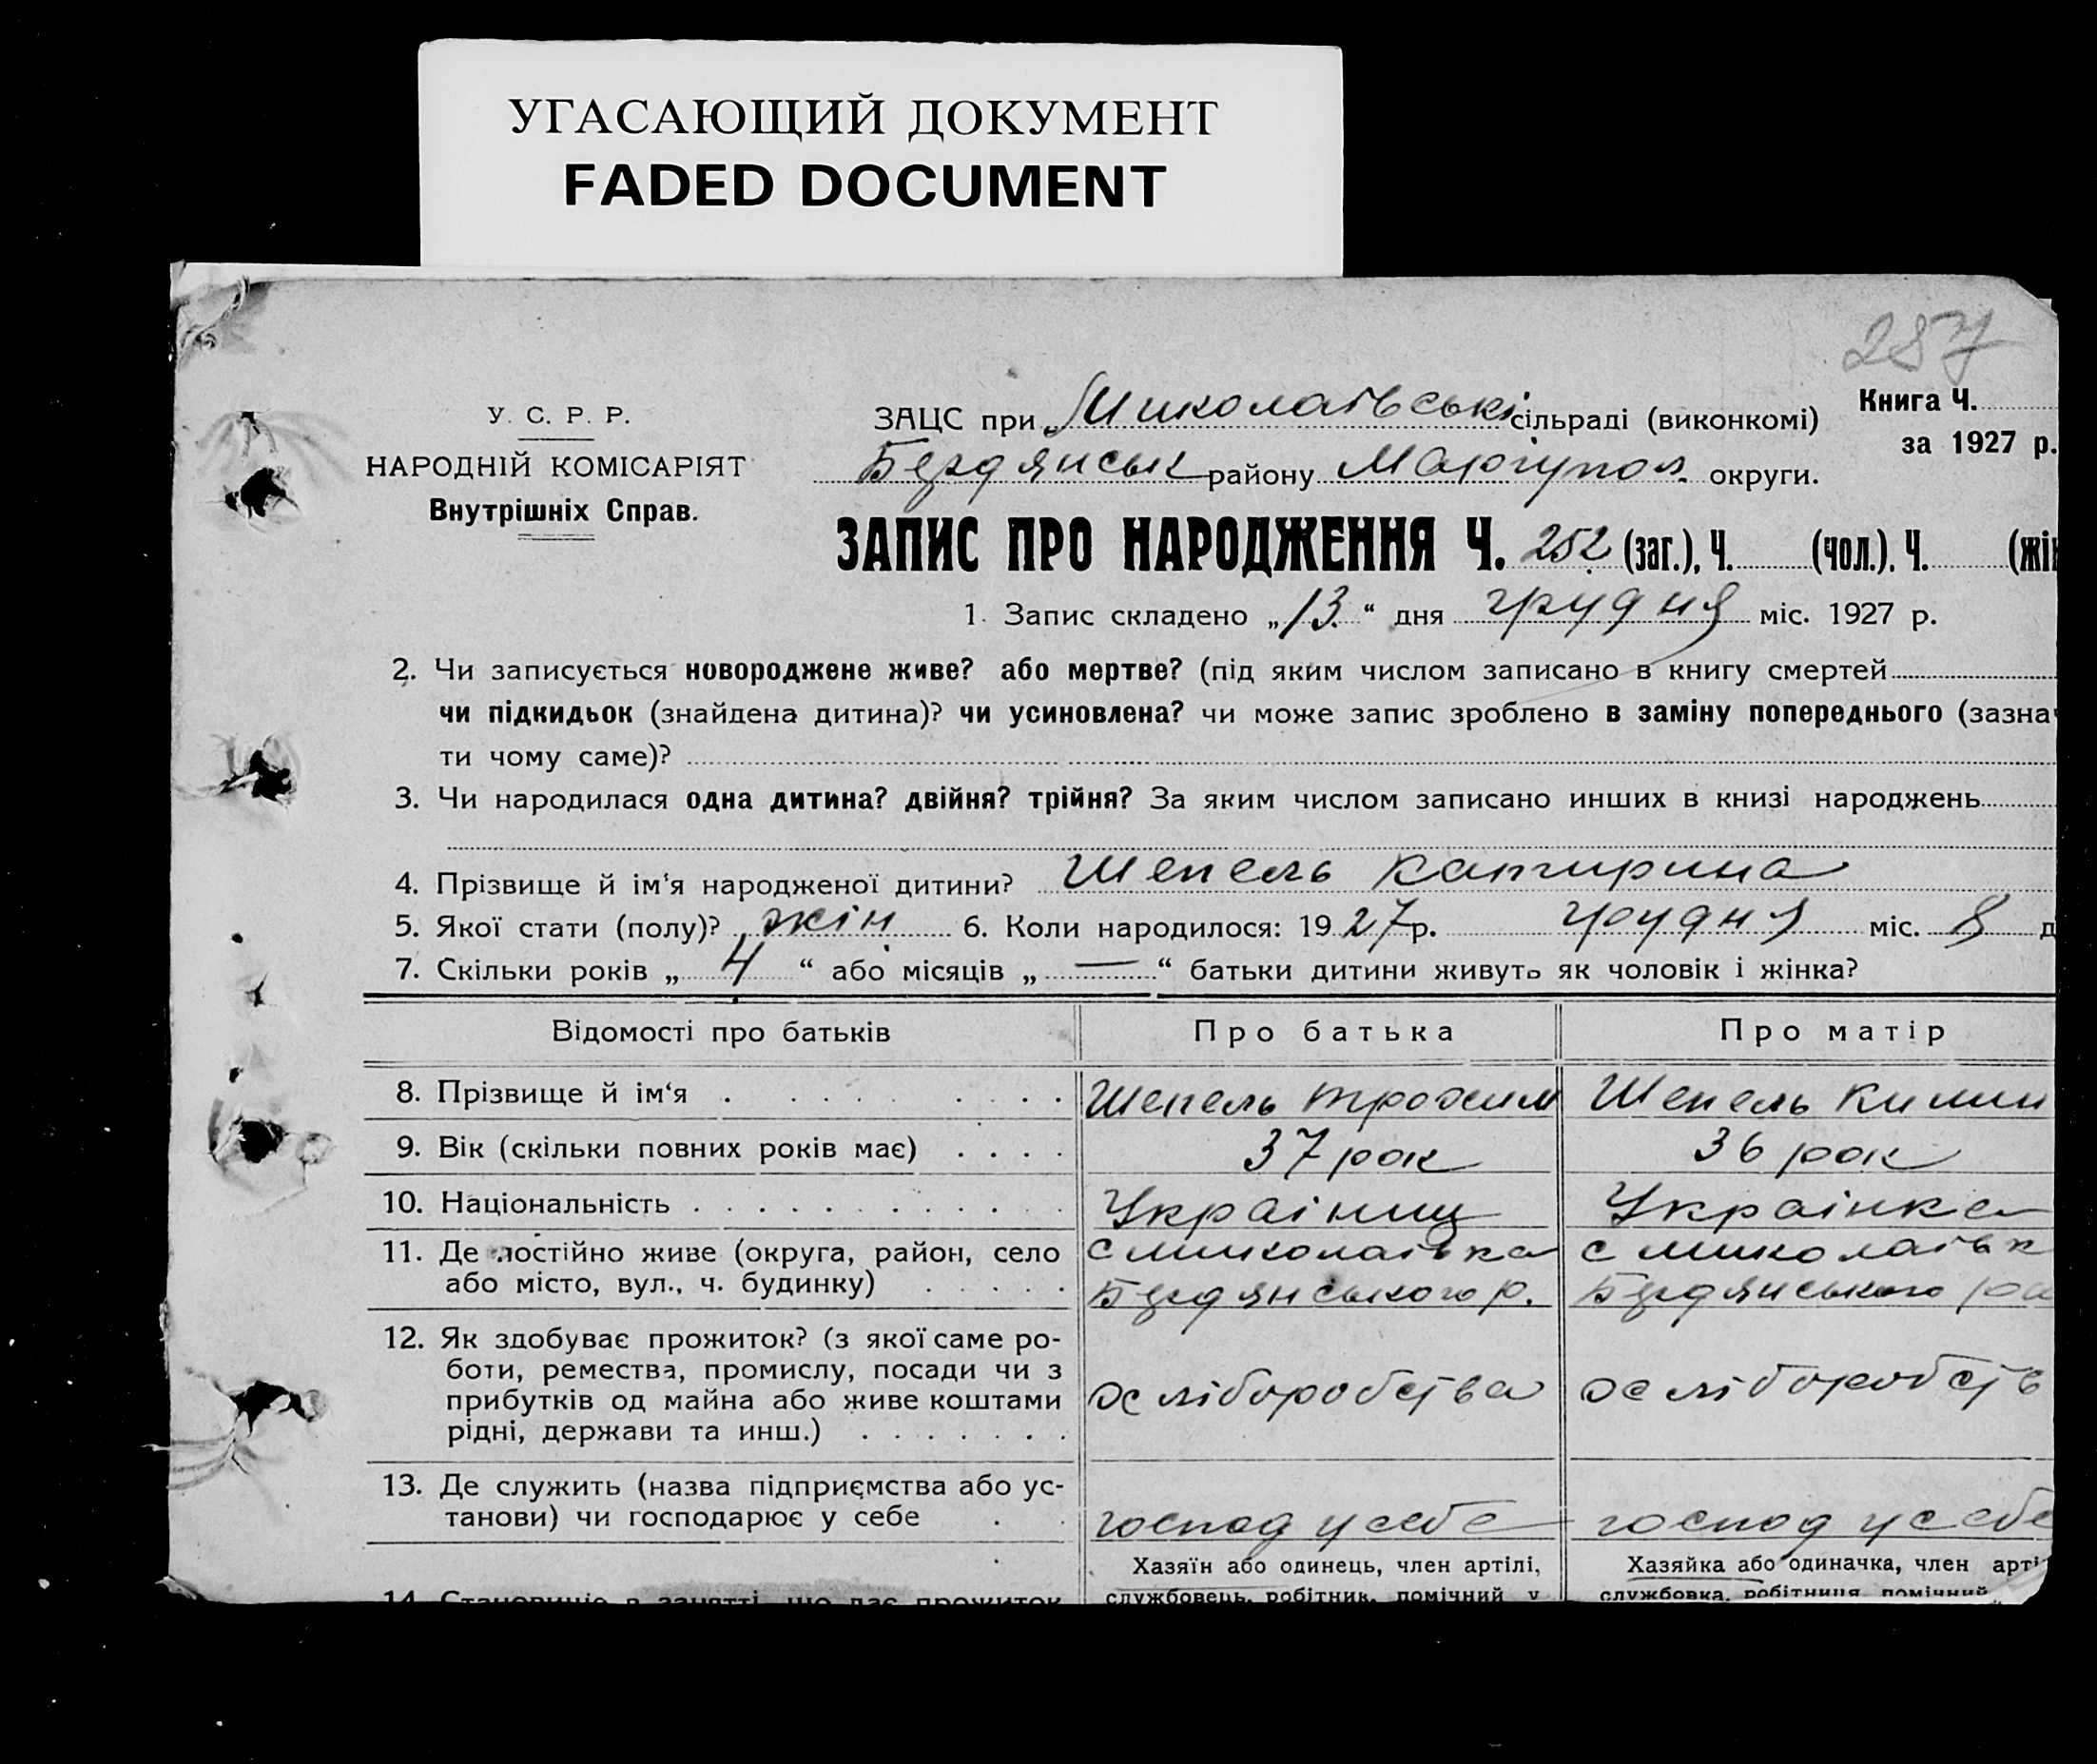 УГАСАЮЩИЙ ДОКУМЕНТ
FADED DOCUMENT
287
У. С. Р. Р.
НАРОДНІЙ КОМІСАРІЯТ
Внутрішніх Справ.
ЗАЦС при Миколаївські сільраді (виконкомі)
Бердянськ району Маріупол. округи.
Книга Ч.
за 1927 р.
ЗАПИС ПРО НАРОДЖЕННЯ Ч. 252 (заг.), Ч. (чол.). Ч. (жін
1. Запис складено „13“ дня грудня міс. 1927 р.
2. Чи записується новороджене живе? або мертве? (під яким числом записано в книгу смертей
чи підкидьок (знайдена дитина)? чи усиновлена? чи може запис зроблено в заміну попереднього (зазна
ти чому саме)?
3. Чи народилася одна дитина? двійня? трійня? За яким числом записано инших в книзі народжень
4. Прізвище й ім'я народженої дитини? Шепель Катирина
5. Якої стати (полу)? жін 6. Коли народилося: 1927 р. грудня міс. 8 д
7. Скільки років „4“ або місяців „—“ батьки дитини живуть як чоловік і жінка?
Відомості про батьків Про батька Про матір
8. Прізвище й ім'я Шепель Трохим Шепель Килин
9. Вік (скільки повних років має) 37 рок 36 рок
10. Національність Українц Українка
11. Де постійно живе (округа, район, село с Миколаївка с Миколаївк
або місто, вул., ч. будинку) Бердянського р. Бердянського ра
12. Як здобуває прожиток? (з якої саме ро-
боти, ремества, промислу, посади чи з
прибутків од майна або живе коштами хліборобства хліборобств
рідні, держави та инш.)
13. Де служить (назва підприємства або ус-
танови) чи господарює у себе господ у себе господ у себе
Хазяїн або одинець, член артілі, Хазяйка або одиначка, член арті
14. Становище в занятті, що дає прожиток службовець, робітник, помічний у службовка, робітниця, помічний